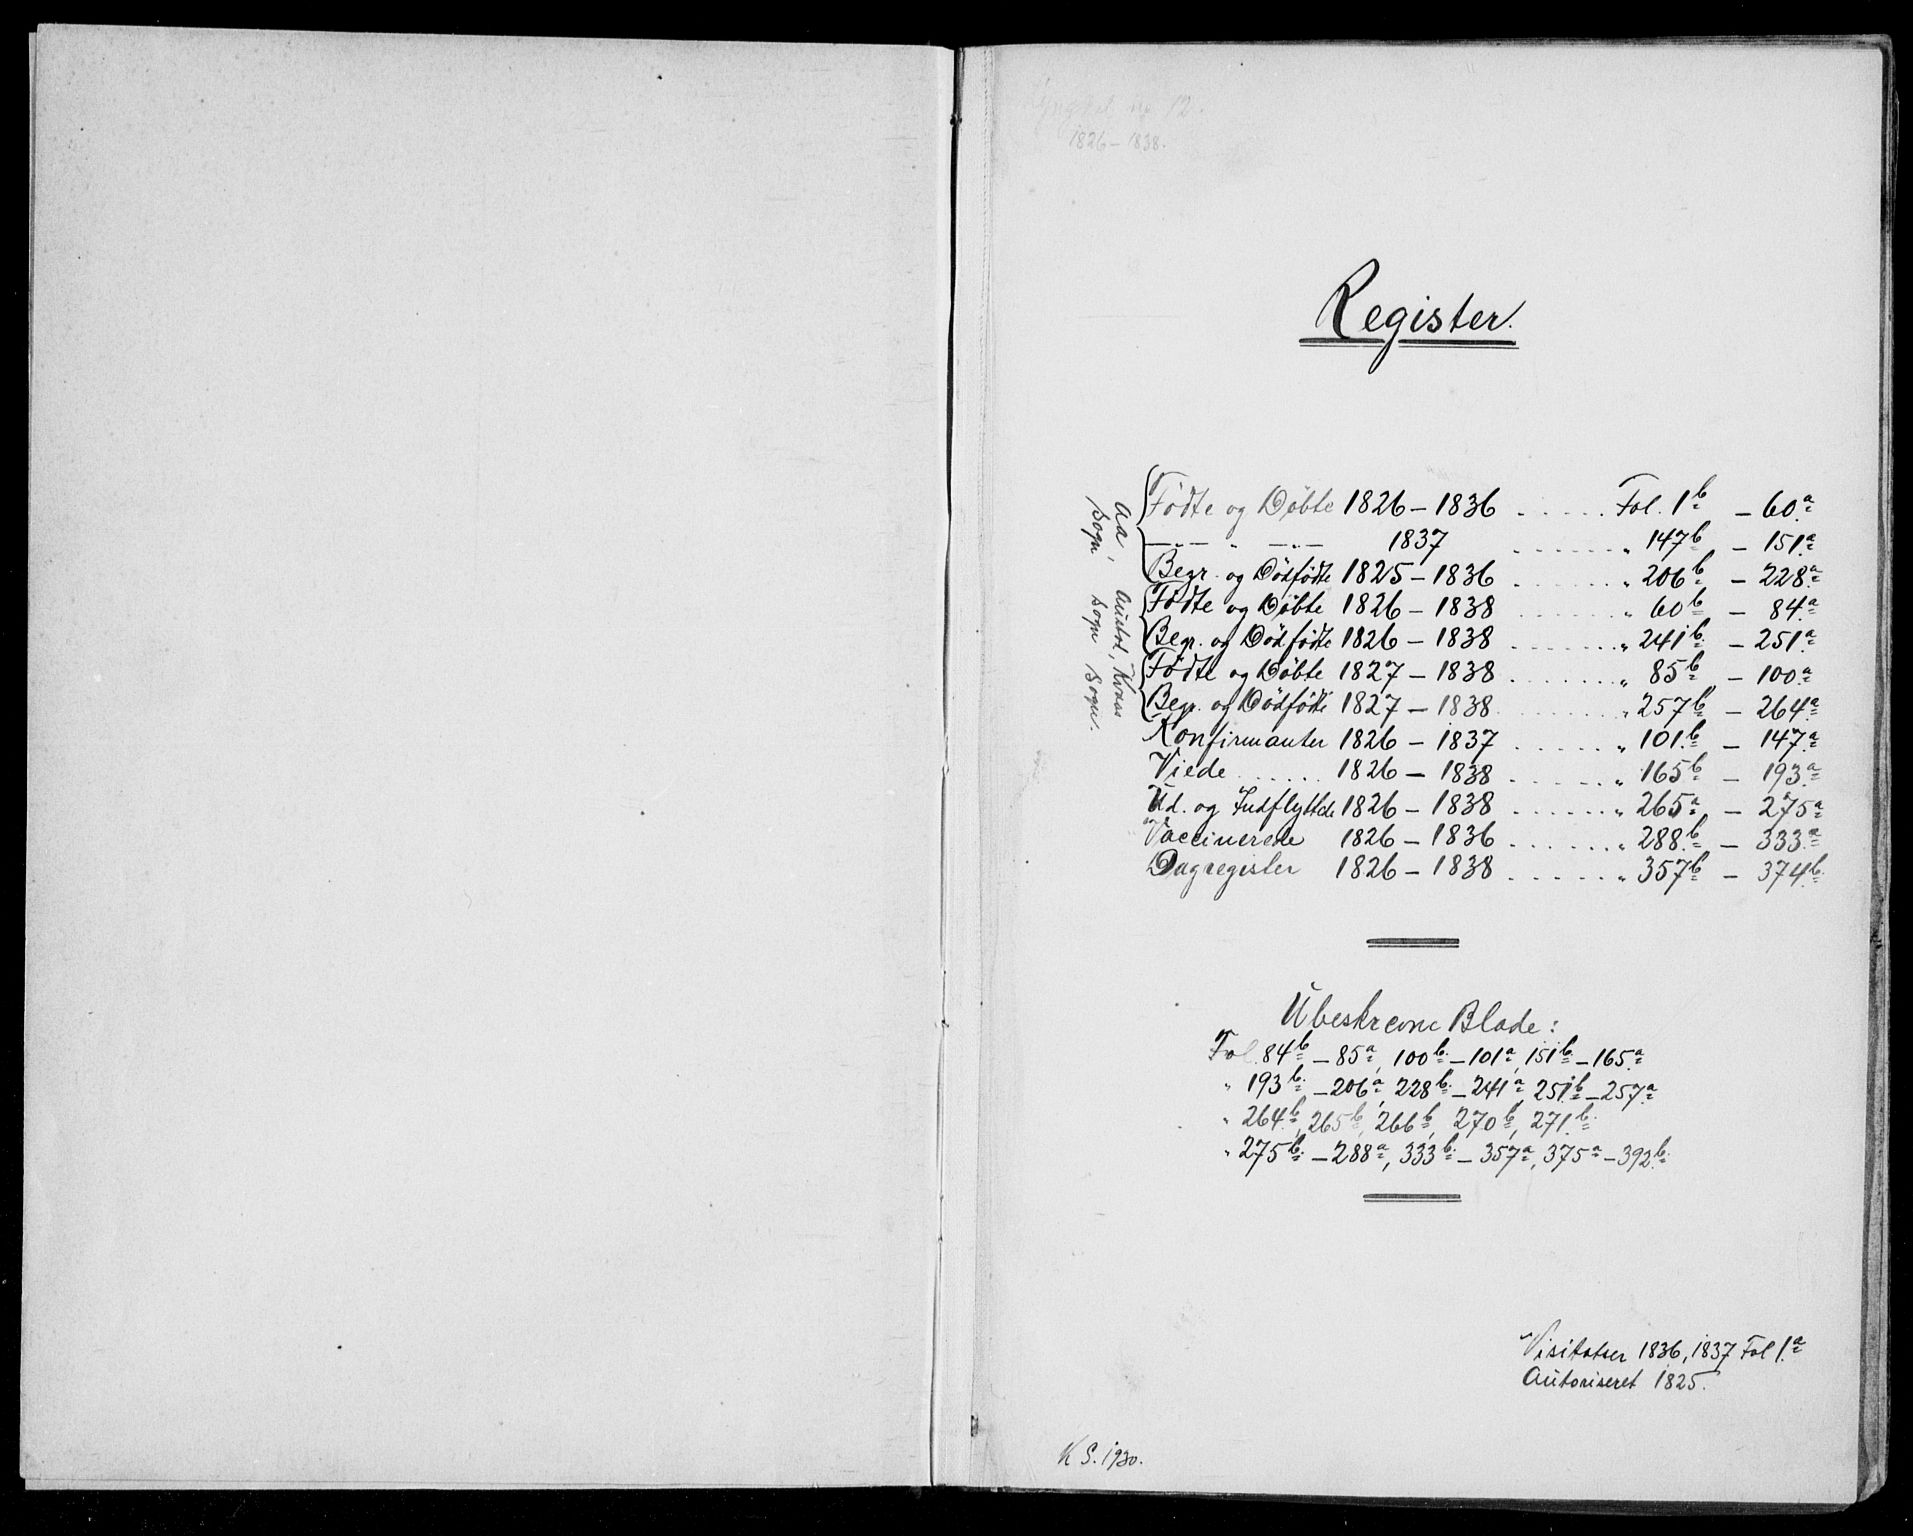 Lyngdal no 12.
1826–1838.
Register.
Aa, Austad, Kvaas
Sogn Sogn Sogn.
Fødte og Døbte 1826–1836 . . . . . Fol. 1b – 60a
—„— „ —„— 1837 . . . . . . „ 147b – 151a
Begr. og Dødfødte 1825–1836 . . . . . . „ 206b – 228a
Fødte og Døbte 1826–1838 . . . . . . „ 60b – 84a
Begr. og Dødfødte 1826–1838 . . . . . . „ 241b – 251a
Fødte og Døbte 1827–1838 . . . . . . „ 85b – 100a
Begr. og Dødfødte 1827–1838 . . . . . . „ 257b – 264a
Konfirmanter 1826–1837 . . . . . . „ 101b – 147a
Viede . . . . . . 1826–1838 . . . . . . „ 165b – 193a
Ud. og Indflyttede 1826–1838 . . . . . . „ 265a – 275a
Vaccinerede 1826–1836 . . . . . . „ 288b – 333a
Dagregister 1826–1838 . . . . . . „ 357b – 374b
Ubeskrevne Blade:
Fol. 84b – 85a, 100b – 101a, 151b – 165a
„ 193b – 206a, 228b – 241a, 251b – 257a
„ 264b, 265b, 266b, 270b, 271b
„ 275b – 288a, 333b – 357a, 375a – 392b
Visitatser 1836, 1837 Fol 1a
Autoriseret 1825.
K S. 1930.